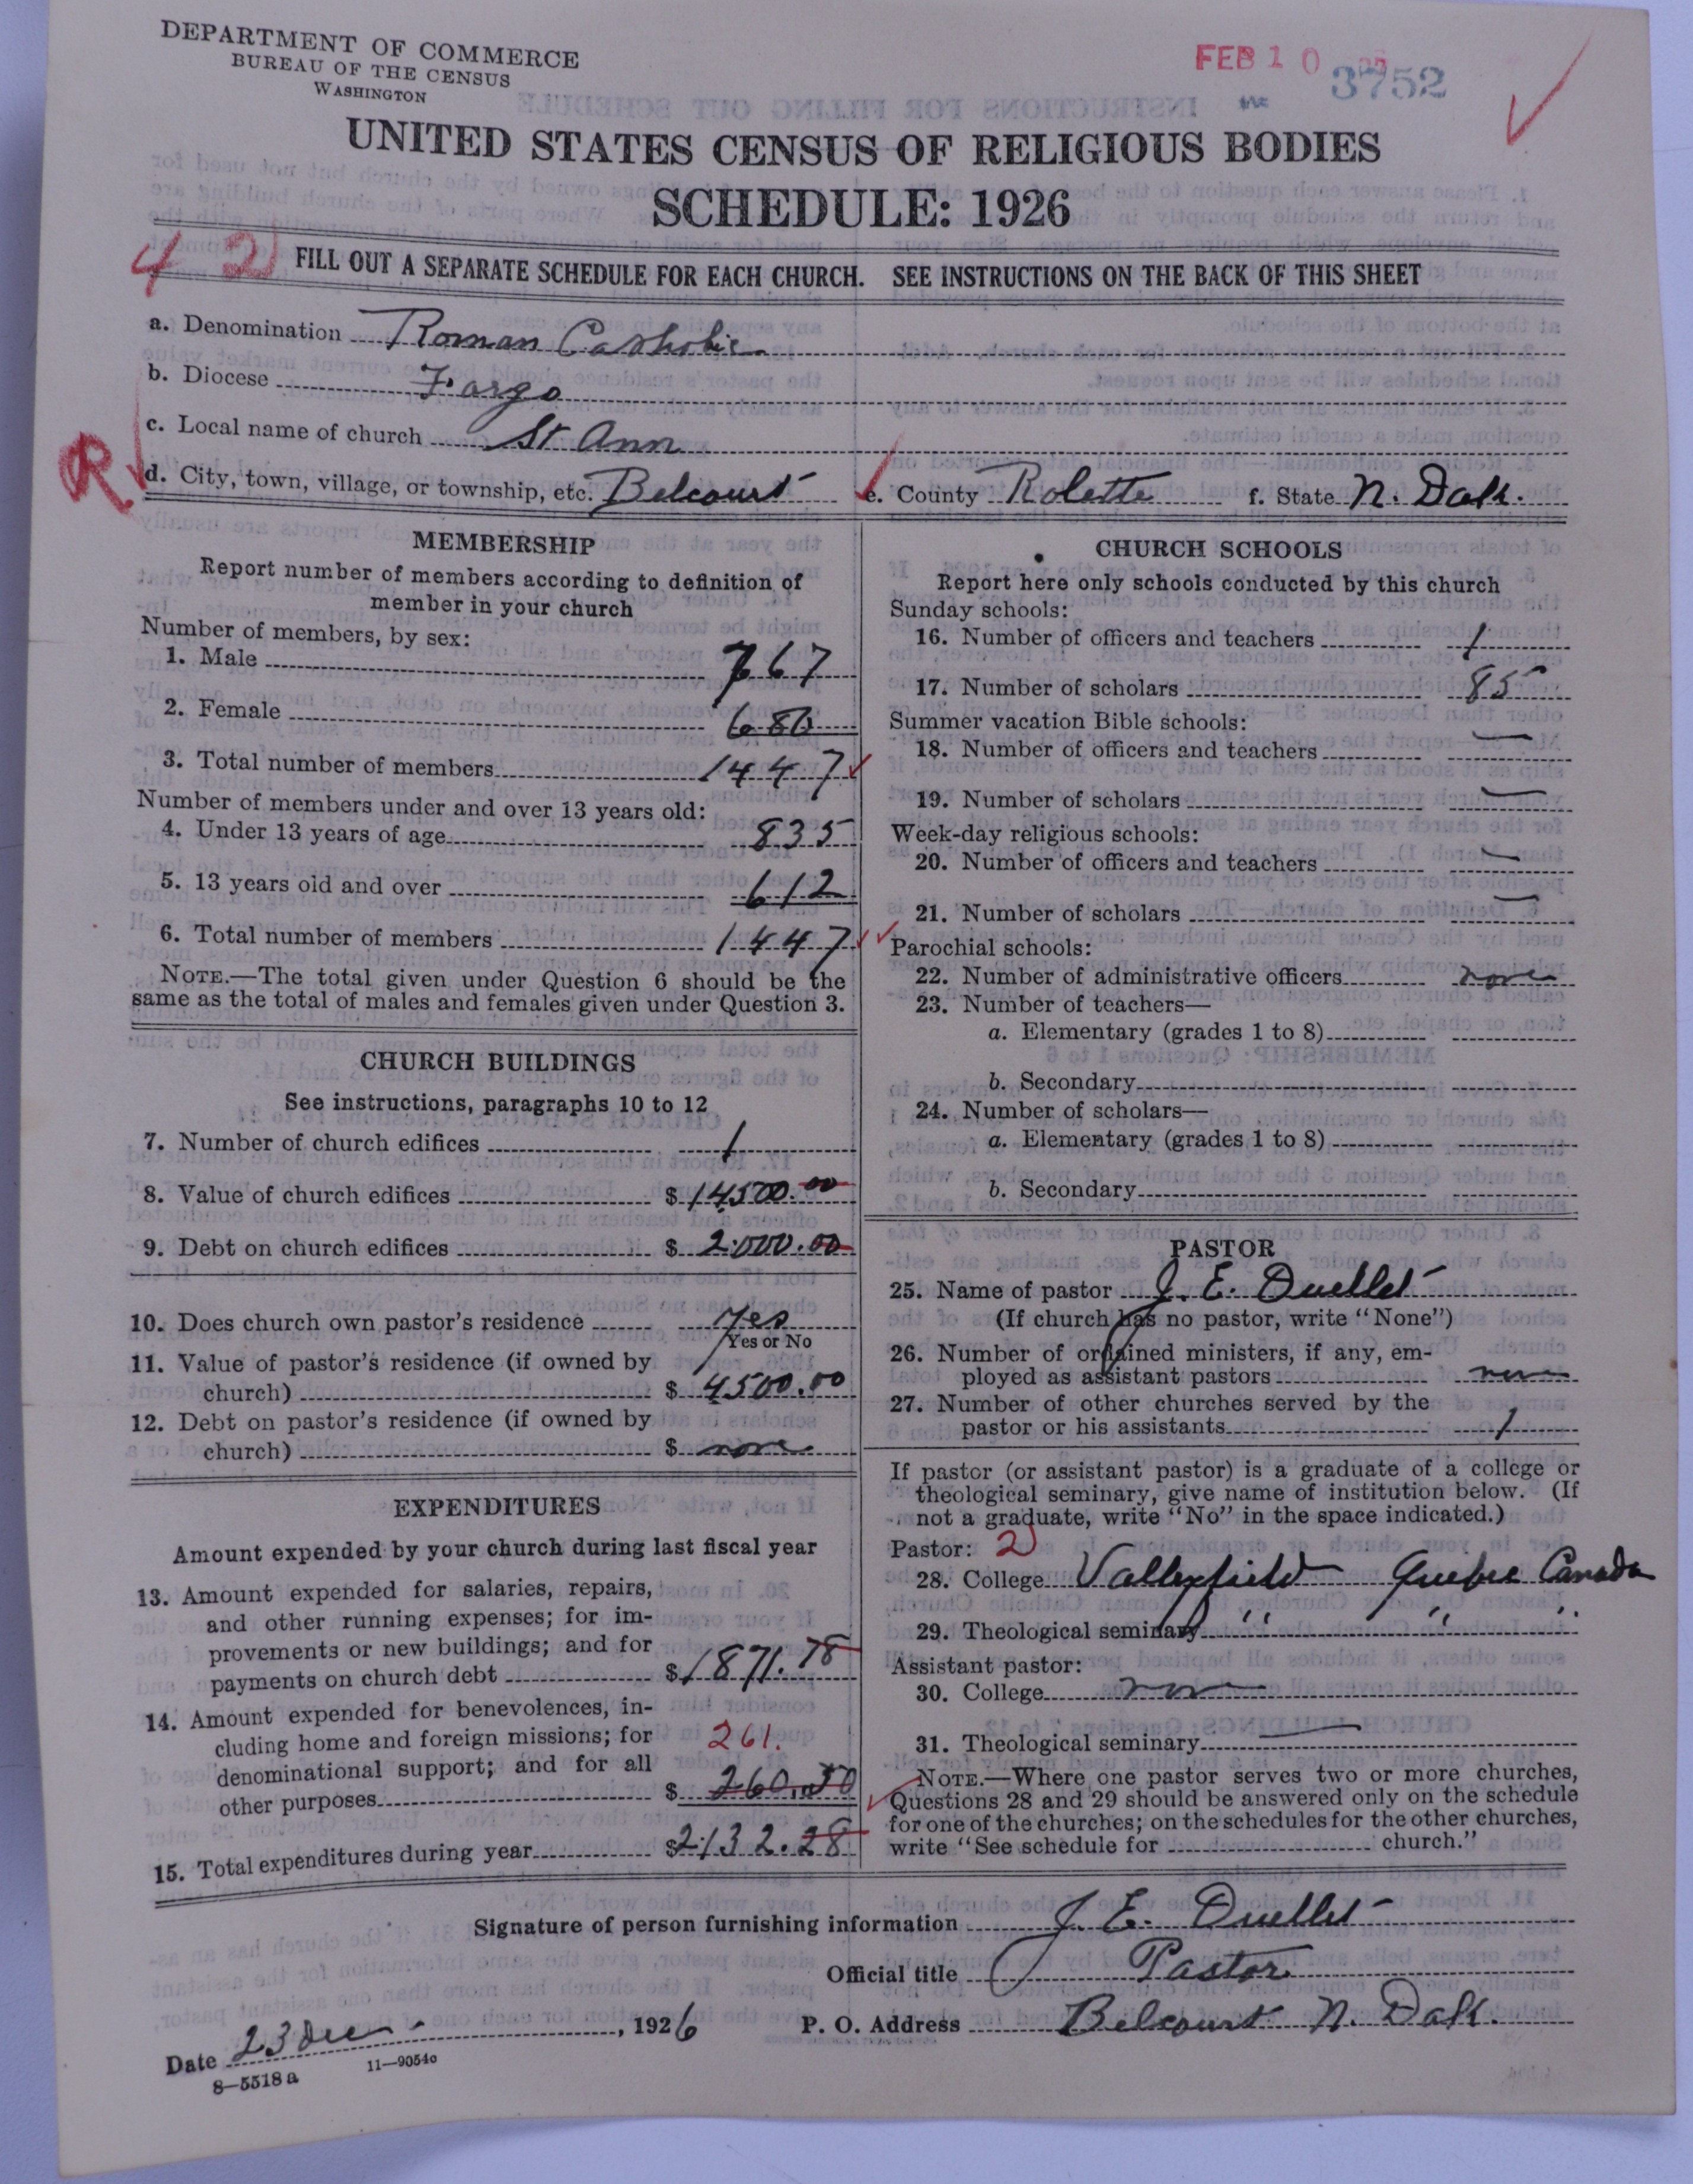 DEPARTMENT OF COMMERCE
BUREAU OF THE CENSUS
WASHINGTON
FEB 10
3752
UNITED STATES CENSUS OF RELIGIOUS BODIES
SCHEDULE: 1926
4 2
FILL OUT A SEPARATE SCHEDULE FOR EACH CHURCH. SEE INSTRUCTIONS ON THE BACK OF THIS SHEET
a. Denomination Roman Catholic
b. Diocese Fargo
c. Local name of church St Ann
R
d. City, town, village, or township, etc. Belcourt e. County Rolette f. State N. Dak.
MEMBERSHIP
Report number of members according to definition of
member in your church
Number of members, by sex:
1. Male 767
2. Female 680
3. Total number of members 1447
Number of members under and over 13 years old:
4. Under 13 years of age 835
5. 13 years old and over 612
6. Total number of members 1447
NOTE.—The total given under Question 6 should be the
same as the total of males and females given under Question 3.
CHURCH BUILDINGS
See instructions, paragraphs 10 to 12
7. Number of church edifices 1
8. Value of church edifices $ 14500.00
9. Debt on church edifices $ 2000.00
10. Does church own pastor's residence Yes
Yes or No
11. Value of pastor's residence (if owned by
church) $ 4500.00
12. Debt on pastor's residence (if owned by
church) $ none
EXPENDITURES
Amount expended by your church during last fiscal year
13. Amount expended for salaries, repairs,
and other running expenses; for im-
provements or new buildings; and for
payments on church debt $ 1871.78
14. Amount expended for benevolences, in-
cluding home and foreign missions; for 261.
denominational support; and for all
other purposes $ 260.50
15. Total expenditures during year $ 2132.28
CHURCH SCHOOLS
Report here only schools conducted by this church
Sunday schools:
16. Number of officers and teachers 1
17. Number of scholars 85
Summer vacation Bible schools:
18. Number of officers and teachers —
19. Number of scholars —
Week-day religious schools:
20. Number of officers and teachers —
21. Number of scholars —
Parochial schools:
22. Number of administrative officers none
23. Number of teachers—
a. Elementary (grades 1 to 8)
b. Secondary
24. Number of scholars—
a. Elementary (grades 1 to 8)
b. Secondary
PASTOR
25. Name of pastor J. E. Ouellet
(If church has no pastor, write "None")
26. Number of ordained ministers, if any, em-
ployed as assistant pastors none
27. Number of other churches served by the
pastor or his assistants 1
If pastor (or assistant pastor) is a graduate of a college or
theological seminary, give name of institution below. (If
not a graduate, write "No" in the space indicated.)
Pastor: 2
28. College Valleyfield Quebec Canada
29. Theological seminary " " "
Assistant pastor:
30. College none
31. Theological seminary —
NOTE.—Where one pastor serves two or more churches,
Questions 28 and 29 should be answered only on the schedule
for one of the churches; on the schedules for the other churches,
write "See schedule for church."
Signature of person furnishing information J. E. Ouellet
Official title Pastor
Date 23 Dec, 1926 P. O. Address Belcourt N. Dak.
8—5518 a 11—9054c